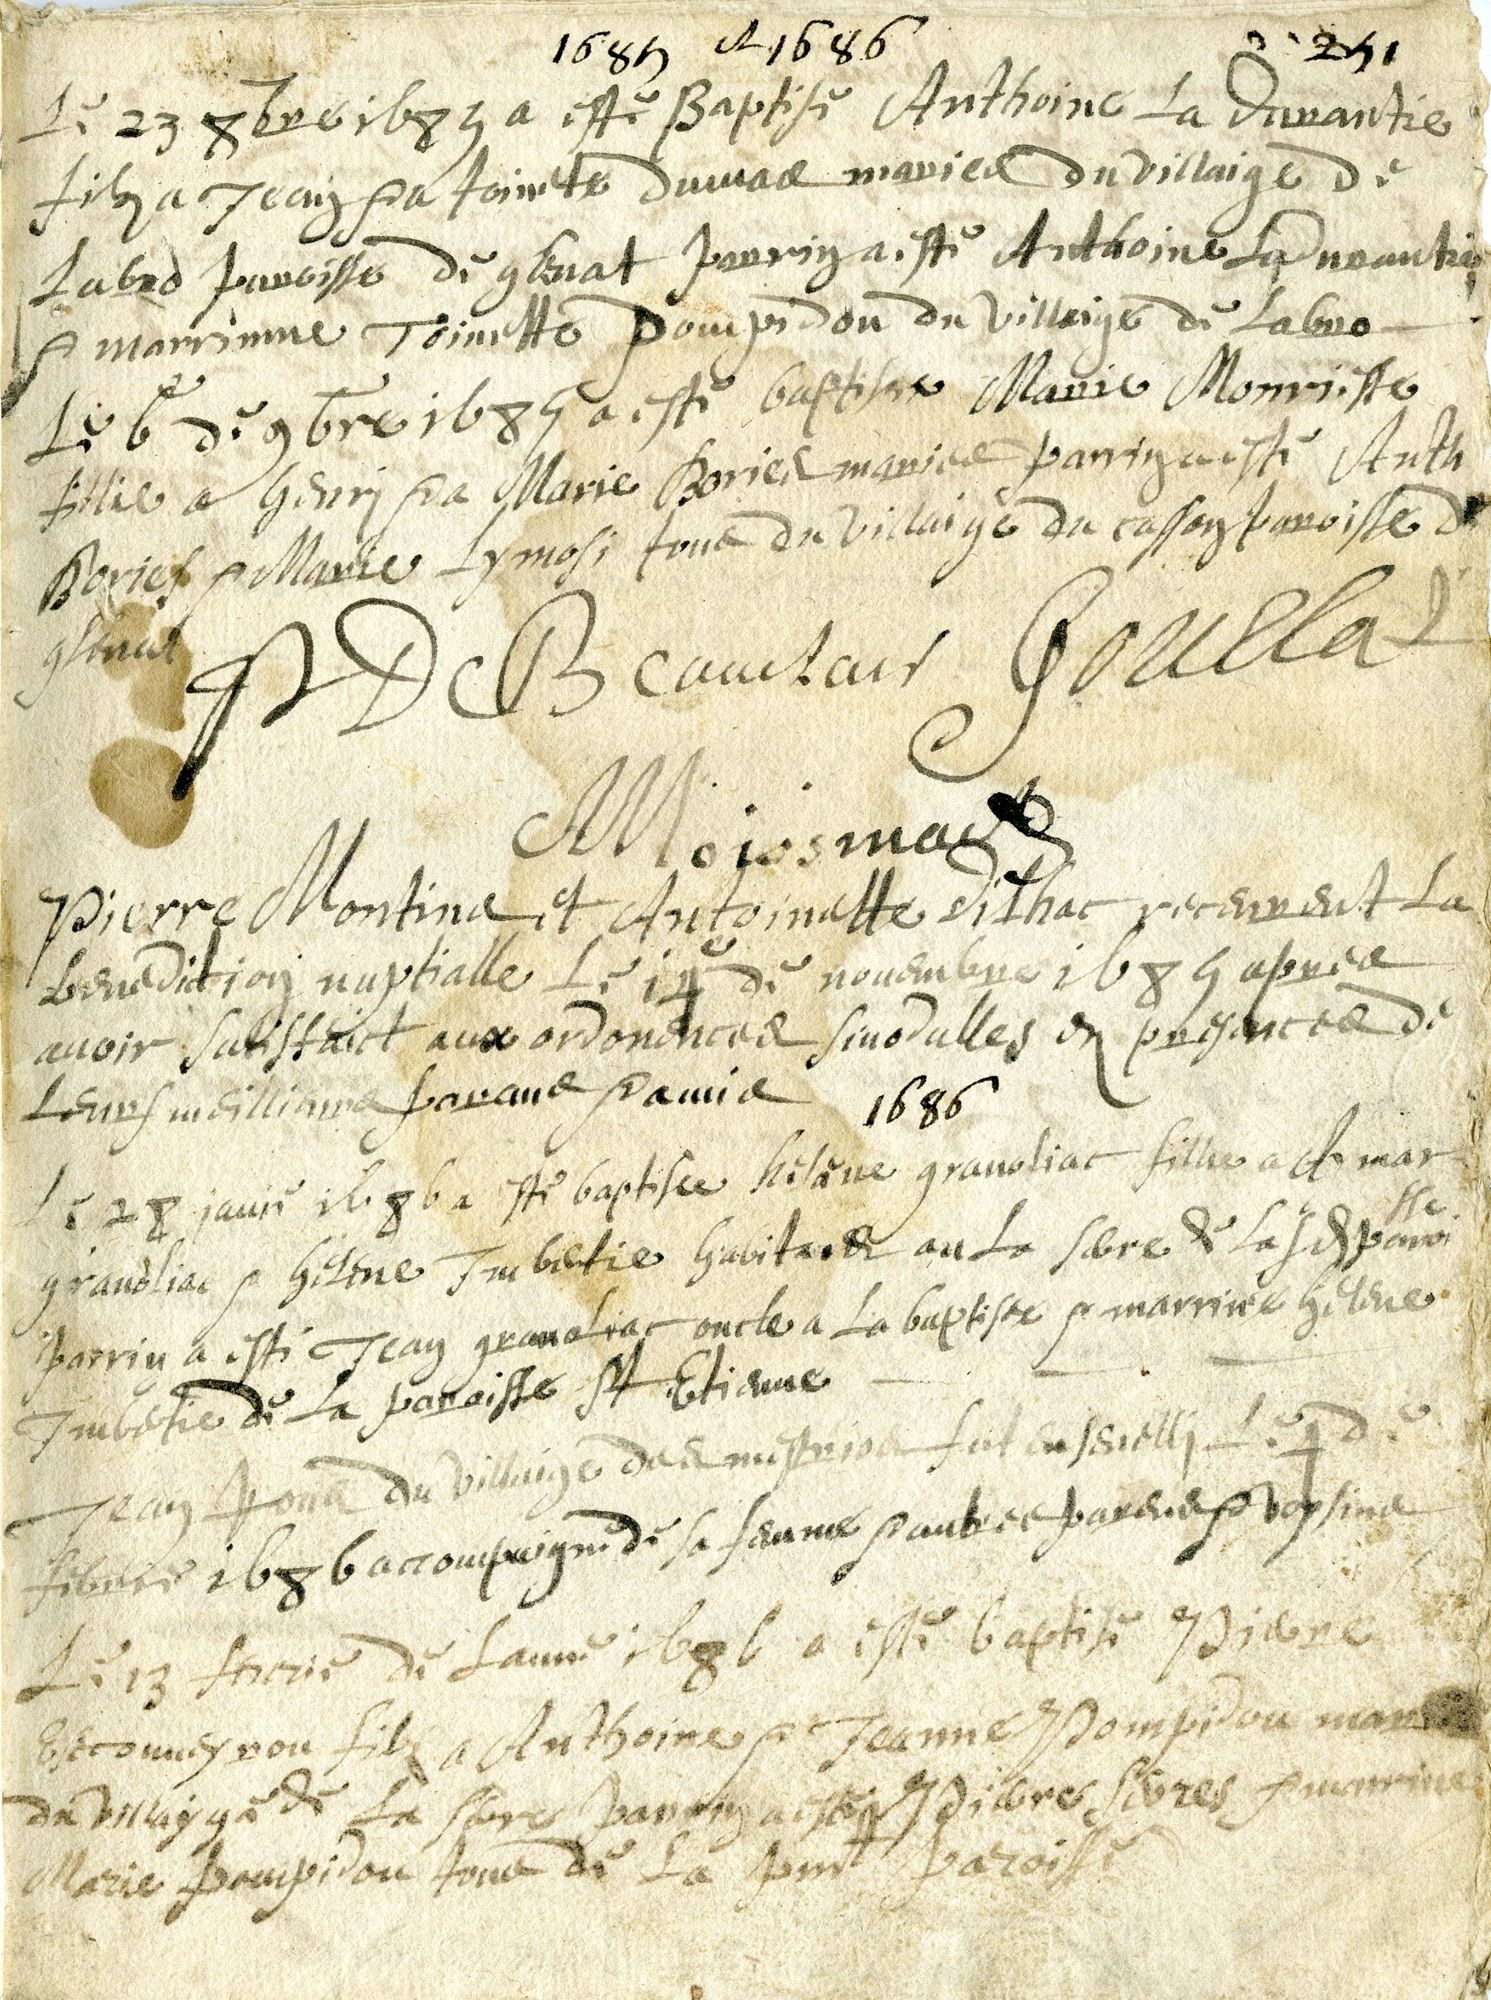 1685 et 1686
251
Le 23 8bre 1685 a esté Baptisé Anthoine La Durantie
filz a Jean & a toinete dumas mariés du villaige de
Labro paroisse de glenat parrin a esté Anthoine La Durantie
& marrinne Toinette Pompidou du villaige de Labro
Le 6e de 9bre 1685 a esté baptisee Marie
fillie a henrj & a Marie Bories mariés parrin a esté Anth
Bories & Marie Lymosi tous du villaige du casson paroisse d
glenat
P De Beauclair Gouzla
Pierre Montins et Antoinette vilhac receurent La
benediction nuptialle Le 14e de nouembre 1685 apres
auoir satisfaict aux ordonences sinodalles en presences de
Leurs meillieurs parans & amis
1686
Le 28 janie 1686 a esté baptisee heléne granoliac fillie a mar
granoliac & heléne Imbertie habitans au La sere de La paroi
sse
parrin a esté Jean granoliac oncle a La baptisee & marrine heléne
Imbertie de La paroisse St Etienne
Jean du villaige des fut enseuelj Le de
febrier 1686 accompaigné de sa femme & autres parens & voysins
Le 13 de Lanné 1686 a esté baptisé Pierre
filz a Anthoine & Jeanne Pompidou
du villayge de La sere parrin a esté Pierre & marrine
Marie pompidou tous de La pnt paroisse